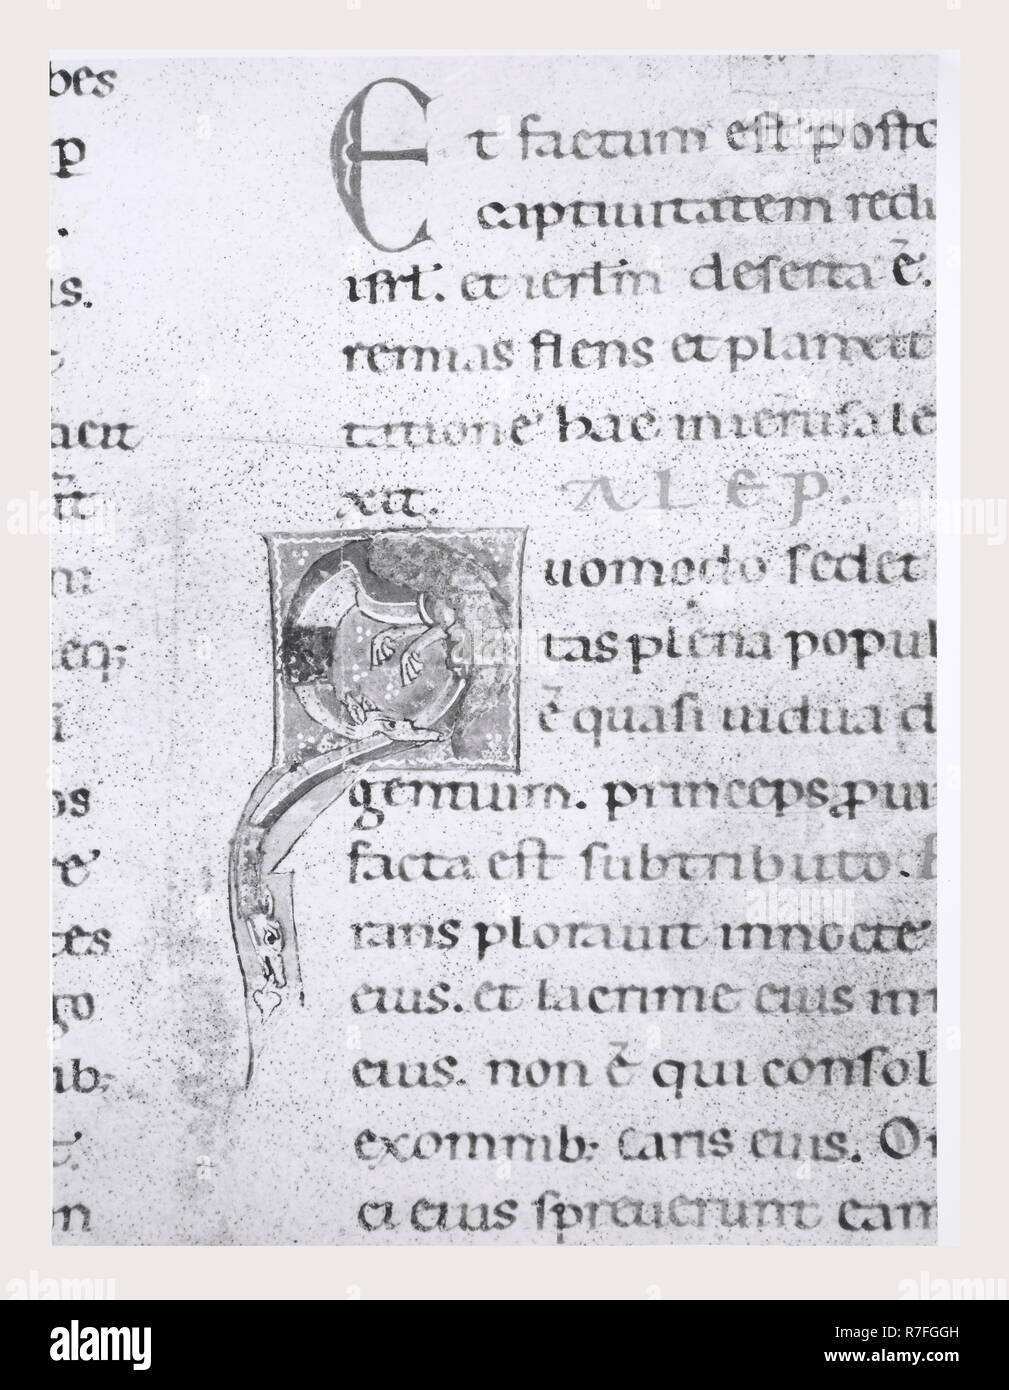 bes
p
.
is.
acit
eq;
os
tes
go
ib;
Et factum est postq
captiuitatem redu
isrl. et ierlm deserta ē.
remias flens et planxit
tatione hac inierusale
xit. ALEP.
Quomodo sedet
tas plena popul
ē quasi uidua d
gentium. princeps ꝓuin
facta est subtributo.
rans plorauit innocte
eius. et lacrime eius in
eius. non ē qui consol
exomnib; caris eius. Om
ci eius spreuerunt eam
alamy
Image ID: R7FGGH
www.alamy.com